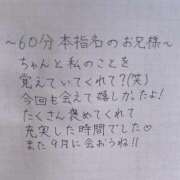 ～60分 本指名のお兄様～
ちゃんと私のことを
覚えていてくれて?(笑)
今回も会えて嬉しかったよ!
たくさん褒めてくれて
充実した時間でした♡
また9月に会おうね!!